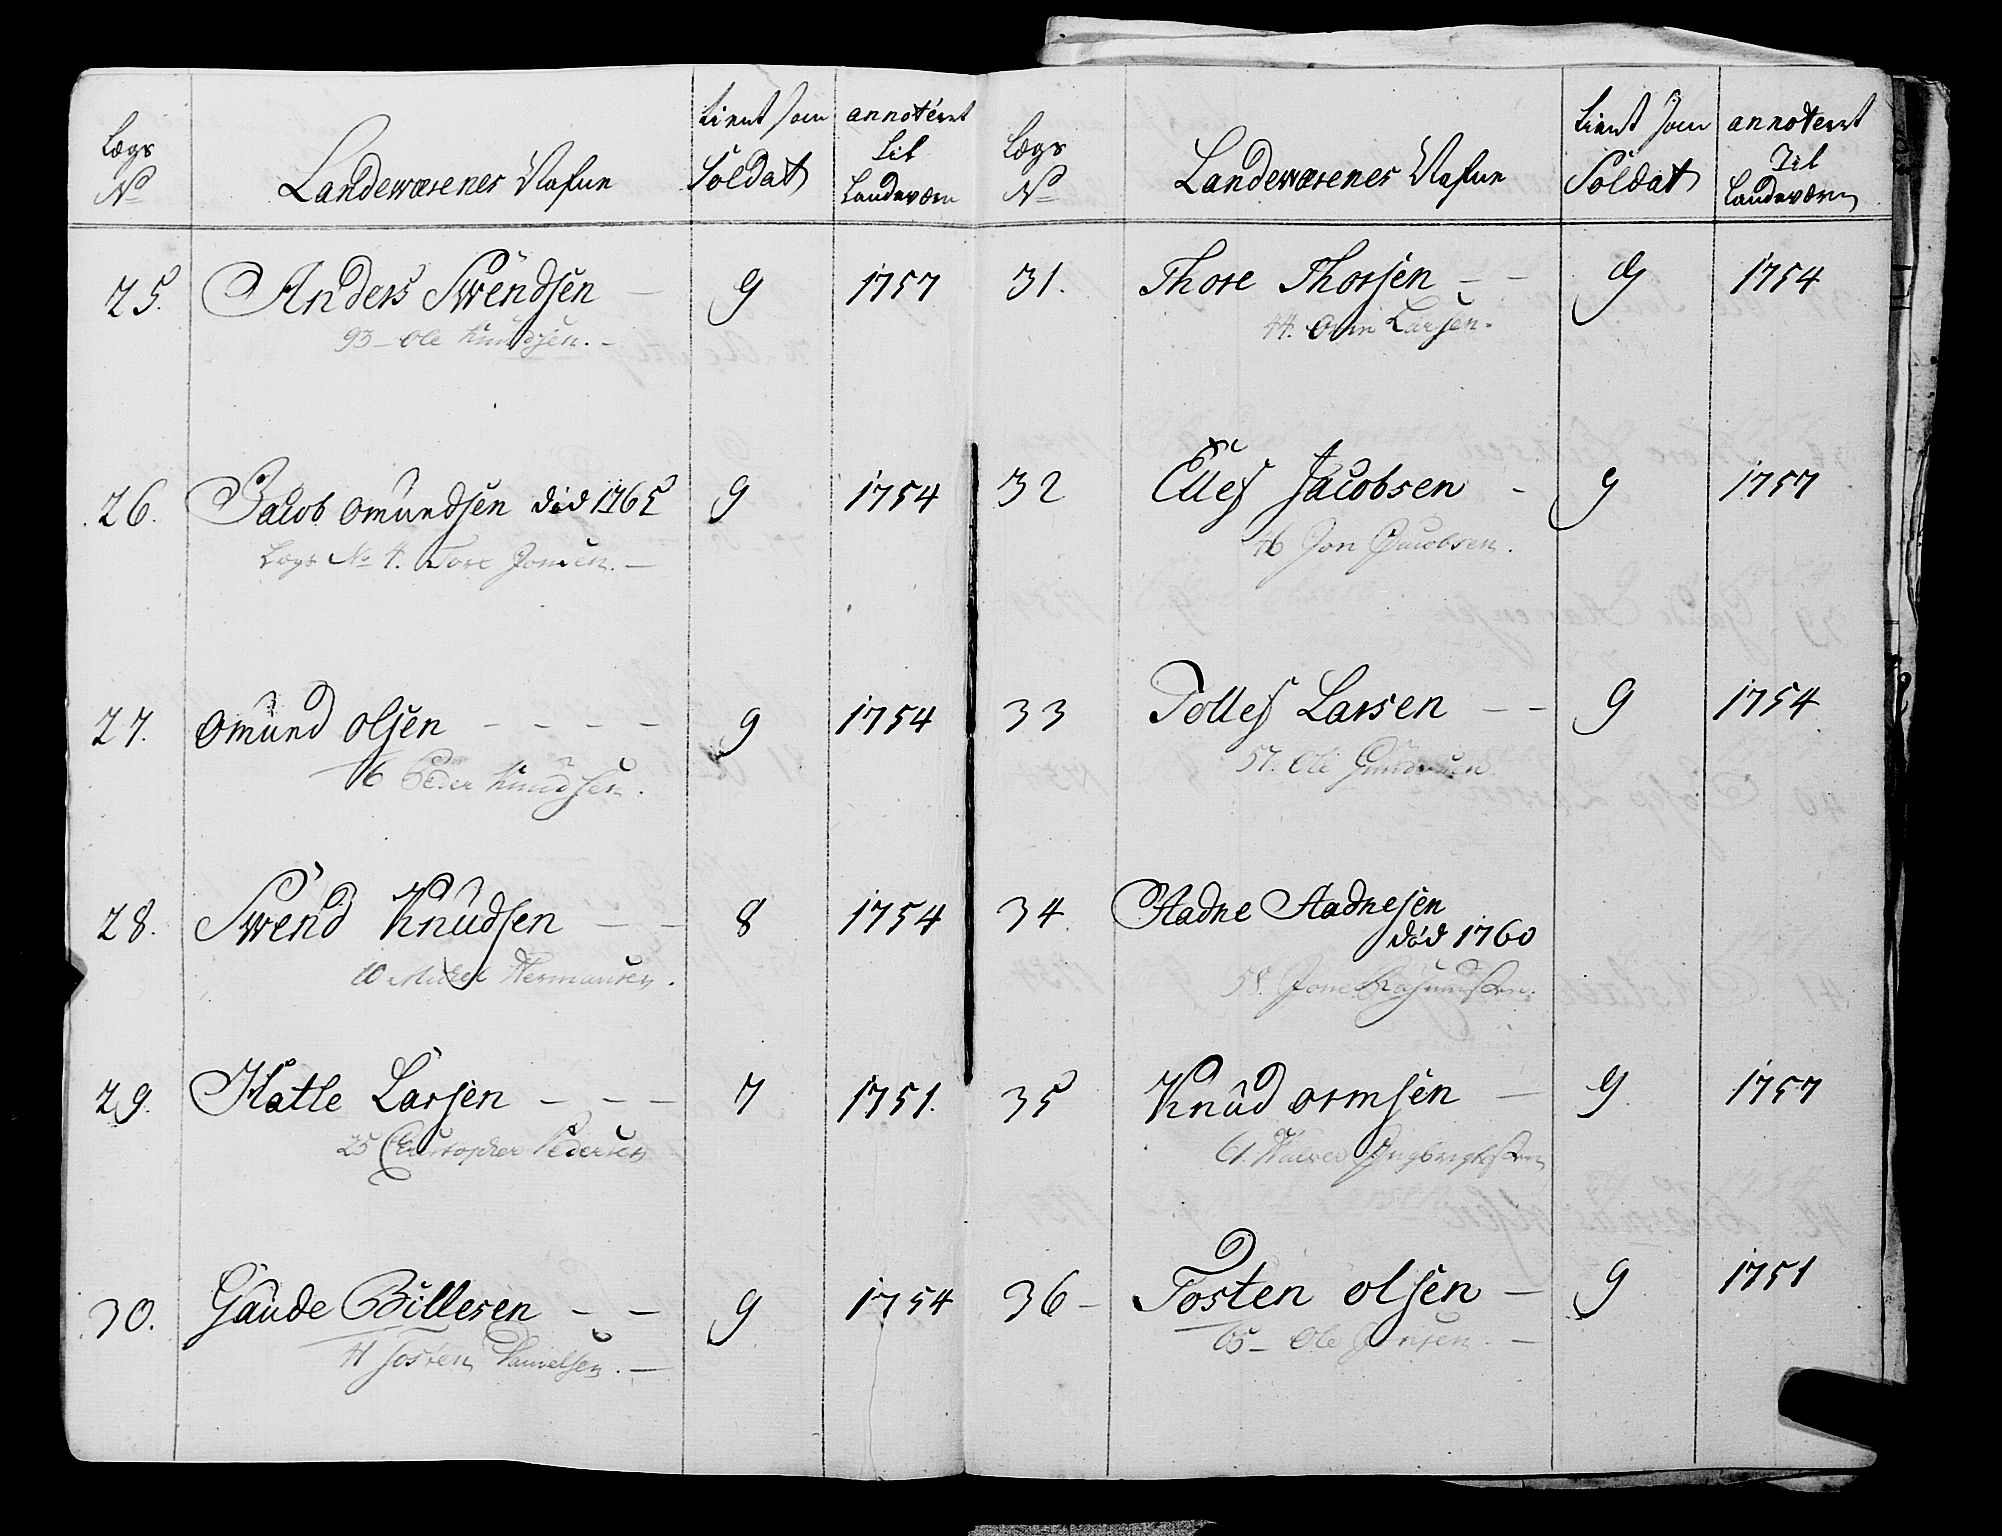 Lægs No Landewærenes Nafne tient som Soldat annoteret til Landeværn
25. Anders Swendsen — 9 1757
93 — Ole Knudsen. —
26. Jacob Omundsen död 1765 9 1754
Lægs No 4. Tore Jonsen. —
27. Omund Olsen — — — — 9 1754
16 Peder Knudsen.
28. Swend Knudsen — — 8 1754
20 Michel Hermansen.
29. Hatle Larsen — — — 7 1751.
25 Christopher Pedersen
30. Gaude Billesen — — 9 1754
41 Tosten Danielsen. —
Lægs No Landewærenes Nafne tient som Soldat annoteret Til Landeværn
31. Thore Thorsen — — 9 1754
44. Larsen.
32 Ellef Jacobsen - 9 1757
46 Jon Jacobsen.
33 Tollef Larsen — — 9 1754
57. Ole
34 Aadne Aadnesen
död 1760
58. Jone Rasmussen.
35 Knud Ormsen — 9. 1757
61. Halvor Engbrigtsen
36 — Tosten Olsen — 9 1751
65 — Ole Jensen. —